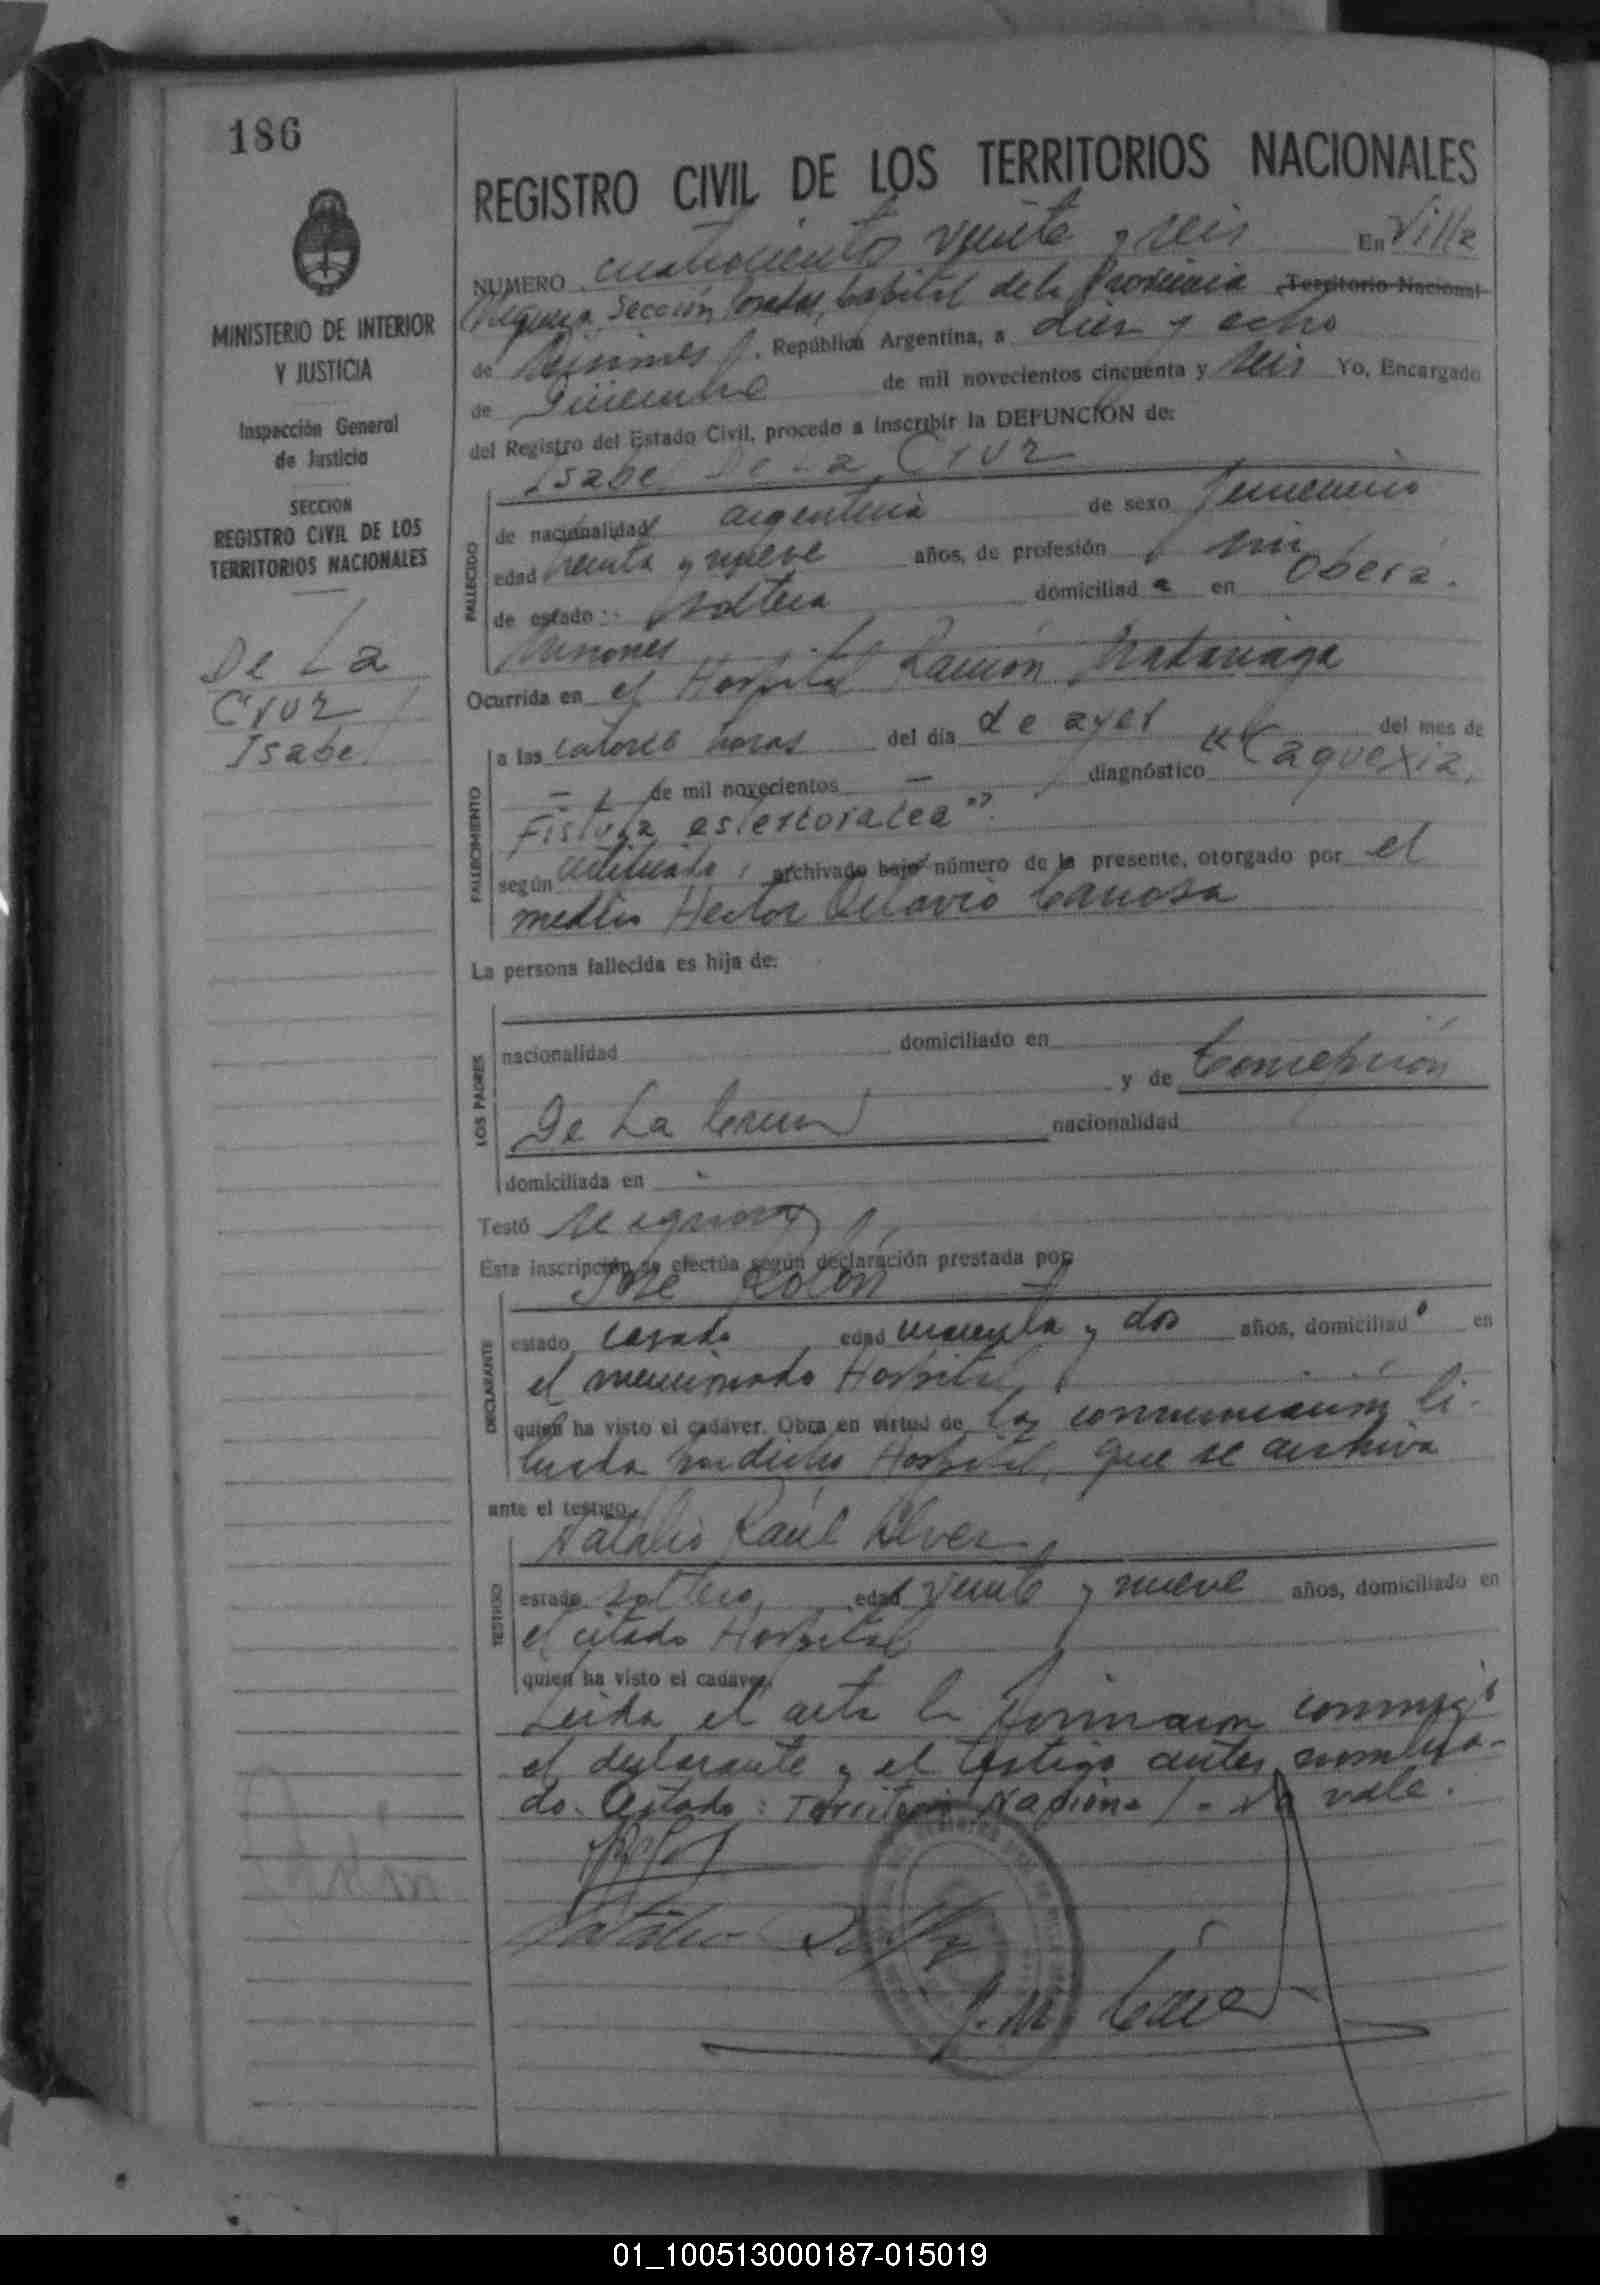 186
REGISTRO CIVIL DE LOS TERRITORIOS NACIONALES
MINISTERIO DE INTERIOR
Y JUSTICIA
Inspección General
de Justicia
SECCION
REGISTRO CIVIL DE LOS
TERRITORIOS NACIONALES
De La
Cruz
Isabel
NUMERO cuatrocientos veinte y seis En Villa
Sección Posadas, Capital de la Provincia Territorio Nacional
de Misiones, República Argentina, a diez y ocho
de Diciembre de mil novecientos cincuenta y seis Yo, Encargado
del Registro del Estado Civil, procedo a inscribir la DEFUNCION de:
Isabel De La Cruz
FALLECIDO
de nacionalidad argentina de sexo femenino
edad y nueve años, de profesión
de estado soltera domiciliada en Oberá.
Misiones
Ocurrida en el Hospital Ramón Madariaga
FALLECIMIENTO
a las catorce horas del día de ayer del mes de
— de mil novecientos — diagnóstico "Caquexia,
Fistula estercoracea".
según certificado archivado bajo número de la presente, otorgado por el
medico Hector Octavio Canosa
La persona fallecida es hija de:
LOS PADRES
nacionalidad domiciliado en
y de Concepción
De La Cruz nacionalidad
domiciliada en
Testó se ignora
Esta inscripción se efectúa según declaración prestada por:
José Rolón
DECLARANTE
estado casado edad cuarenta y dos años, domiciliado en
el mencionado Hospital
quien ha visto el cadáver. Obra en virtud de la comunicación li-
brada por dicho Hospital, que se archiva
ante el testigo
Natalio Raúl Alvez
TESTIGO
estado soltero, edad veinte y nueve años, domiciliado en
el citado Hospital
quien ha visto el cadáver.
Leida el acta la firmaron conmigo
el declarante y el testigo antes nombra-
do. Testado: Territorio Nacional - No vale.
01_100513000187-015019